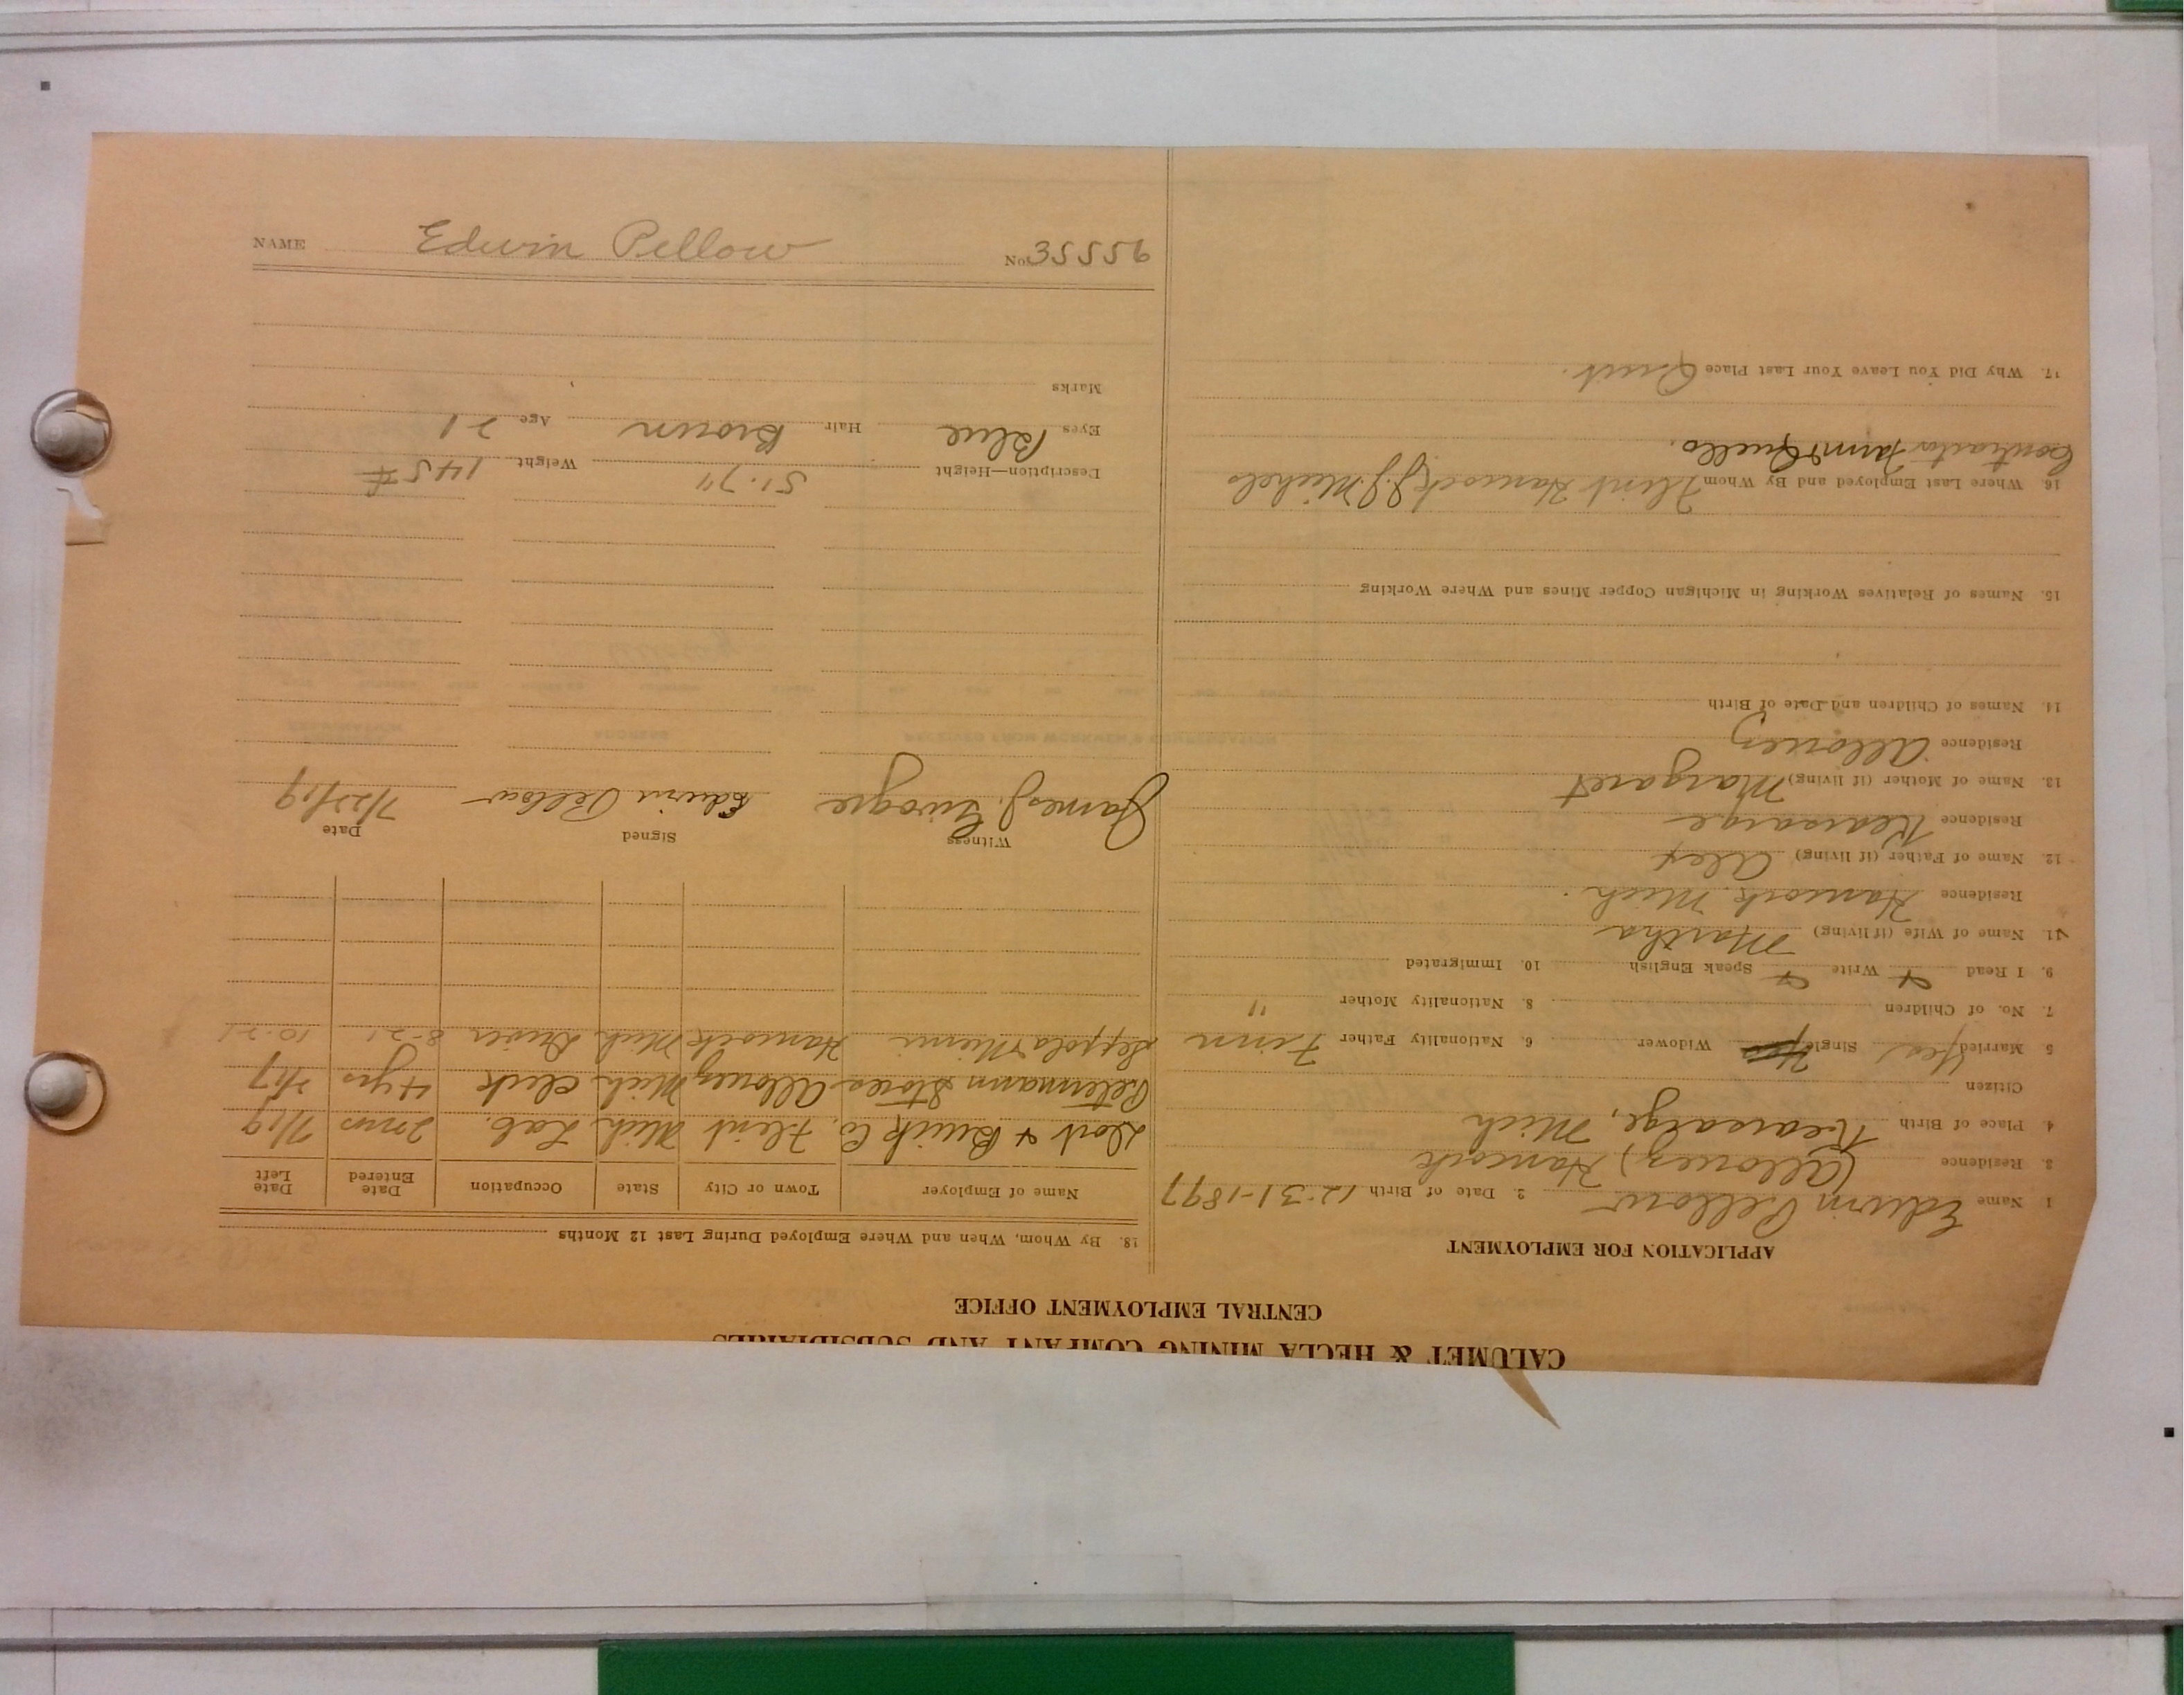 CALUMET & HECLA MINING COMPANY AND SUBSIDIARIES
CENTRAL EMPLOYMENT OFFICE
APPLICATION FOR EMPLOYMENT
1. Name Edwin Pellow 2. Date of Birth 12-31-1897
3. Residence (Allouez) Hancock
4. Place of Birth Kearsarge, Mich
Citizen
5 Married Yes Single Widower 6. Nationality Father Finn
7. No. of Children 8. Nationality Mother "
9. I Read & Write & Speak English 10. Immigrated
11. Name of Wife (if living) Martha
Residence Hancock Mich.
12. Name of Father (if living) Alex
Residence Kearsarge
13. Name of Mother (if living) Margaret
Residence Allouez
14. Names of Children and Date of Birth
15. Names of Relatives Working in Michigan Copper Mines and Where Working
16. Where Last Employed and By Whom Flint Hancock J.J. Michels
Contractor
17. Why Did You Leave Your Last Place Quit.
18. By Whom, When and Where Employed During Last 12 Months
Name of Employer Town or City State Occupation Date Entered Date Left
Dort & Buick Co. Flint Mich Lab. 2 mos 7/19
Petermann Stores Allouez Mich Clerk 4 yrs 2/17
Leppola Hancock Mich Driver 8-21 10-21
Witness Signed Date
James J. Edwin Pellow 7/22/19
Description—Height 5'.7" Weight 145 #
Eyes Blue Hair Brown Age 21
Marks
NAME Edwin Pellow No. 35556